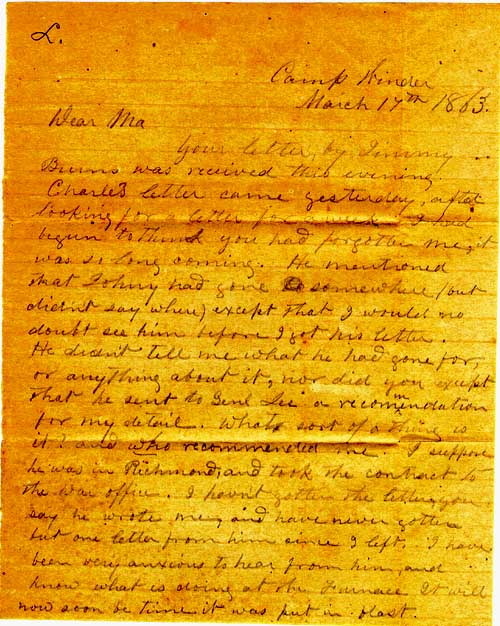 L.
Camp Winder
March 17th 1863.
Dear Ma
Your letter, by Jimmy
Burns was received this evening.
Charles letter came yesterday, after
looking for a letter for a week. I had
begun to think you had forgotten me, it
was so long coming. He mentioned
that Johny had gone somewhere (but
didn't say where) except that I would no
doubt see him before I got his letter.
He didn't tell me what he had gone for,
or anything about it, nor did you except
that he sent to Genl Lee a recomendation
for my detail. What sort of a thing is
it? and who recommended me. I suppose
he was in Richmond, and took the contract to
the War office. I havn't gotten the letter you
say he wrote me, and have never gotten
but one letter from him since I left. I have
been very anxious to hear from him, and
know what is doing at the Furnace. It will
now soon be time it was put in blast.